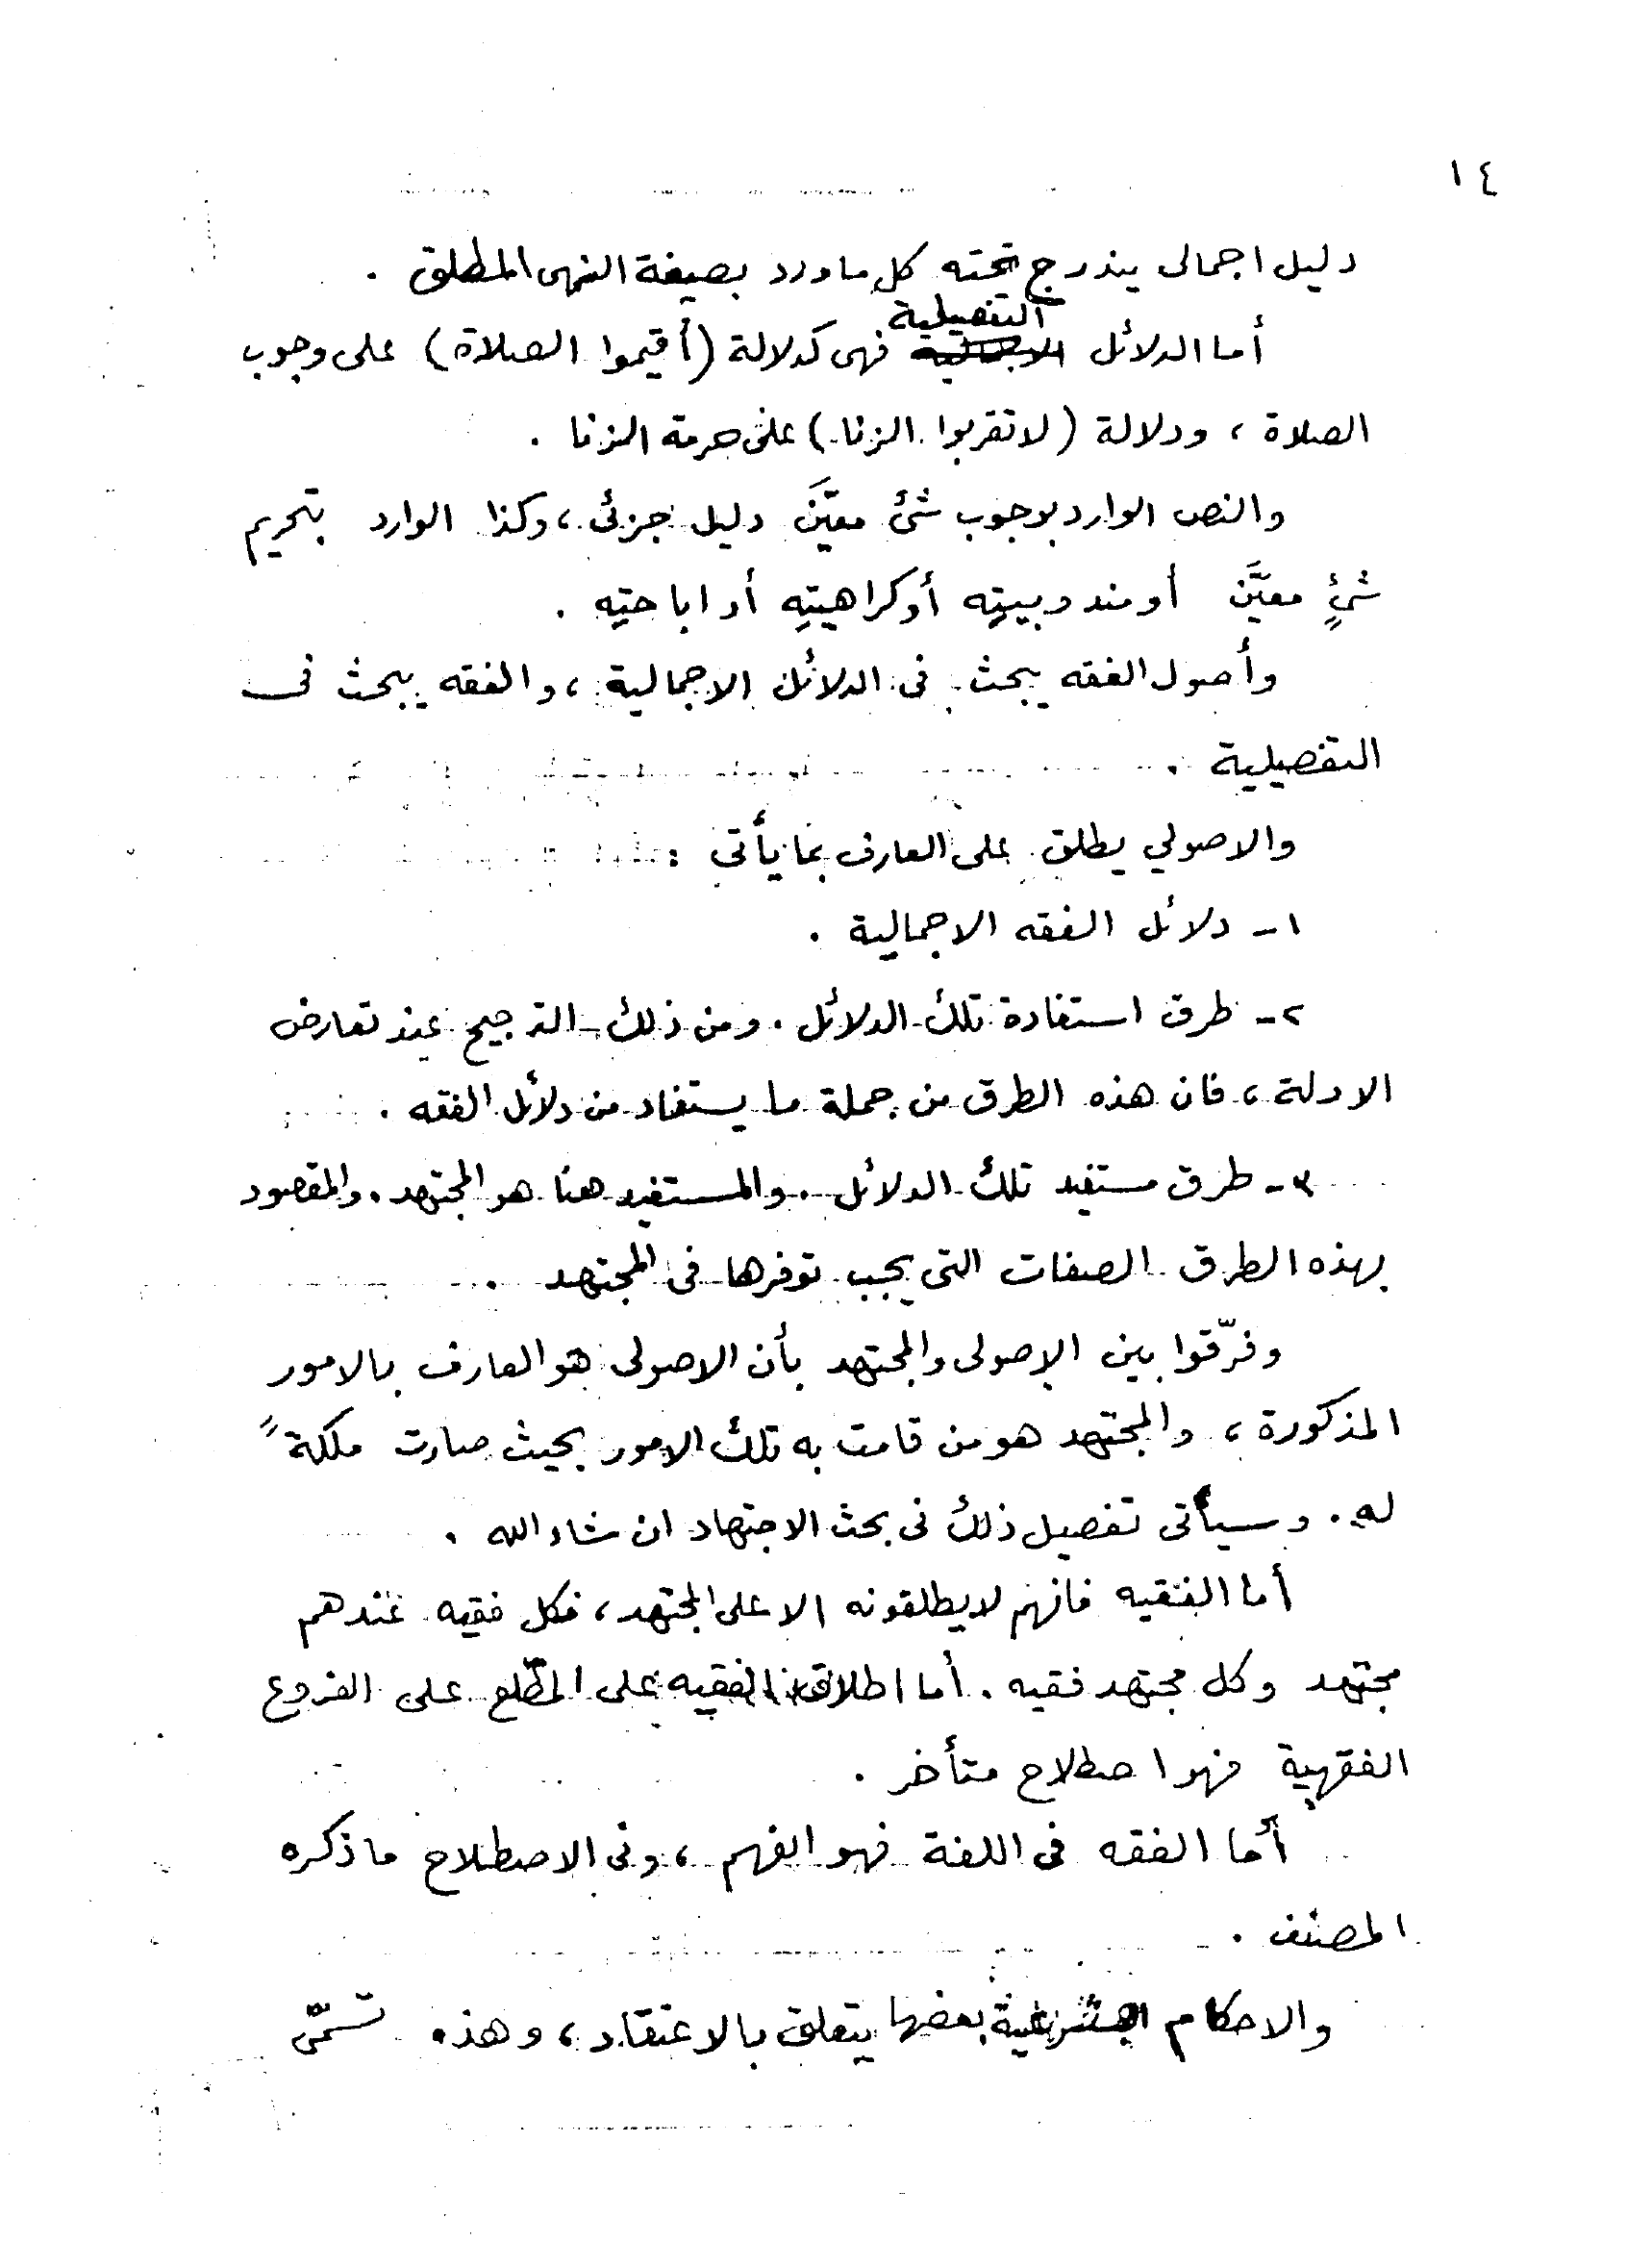 ١٤
دليل اجمالى يندرج تحته كل ما ورد بصيغة النهى المطلق .
أما الدلائل التفصيلية فهى كدلالة (أقيموا الصلاة) على وجوب
الصلاة ، ودلالة (لا تقربوا الزنا) على حرمة الزنا .
والنص الوارد بوجوب شئ معيَّن دليل جزئى ، وكذا الوارد بتحريم
شئٍ معيَّن أو مندوبيتِه أو كراهيتِهِ أو اباحتِه .
وأصول الفقه يبحث فى الدلائل الاجمالية ، والفقه يبحث فى
التفصيلية .
والاصولي يطلق على العارف بما يأتى :
١ـ دلائل الفقه الاجمالية .
٢ـ طرق استفادة تلك الدلائل . ومن ذلك الترجيح عند تعارض
الادلة ، فان هذه الطرق من جملة ما يستفاد من دلائل الفقه .
٣ـ طرق مستفيد تلك الدلائل . والمستفيد هنا هو المجتهد . والمقصود
بهذه الطرق الصفات التى يجب توفرها فى المجتهد .
وفرّقوا بين الاصولى والمجتهد بأن الاصولى هو العارف بالامور
المذكورة ، والمجتهد هو من قامت به تلك الامور بحيث صارت ملكةً
له . وسيأتى تفصيل ذلك فى بحث الاجتهاد ان شاء الله .
أما الفقيه فانهم لا يطلقونه الا على المجتهد ، فكل فقيه عندهم
مجتهد وكل مجتهد فقيه . أما اطلاق الفقيه على المطّلع على الفروع
الفقهية فهو اصطلاح متأخر .
أما الفقه فى اللغة فهو الفهم ، وفى الاصطلاح ما ذكره
المصنف .
والاحكام الشرعية بعضها يتعلق بالاعتقاد ، وهذه تسمّى